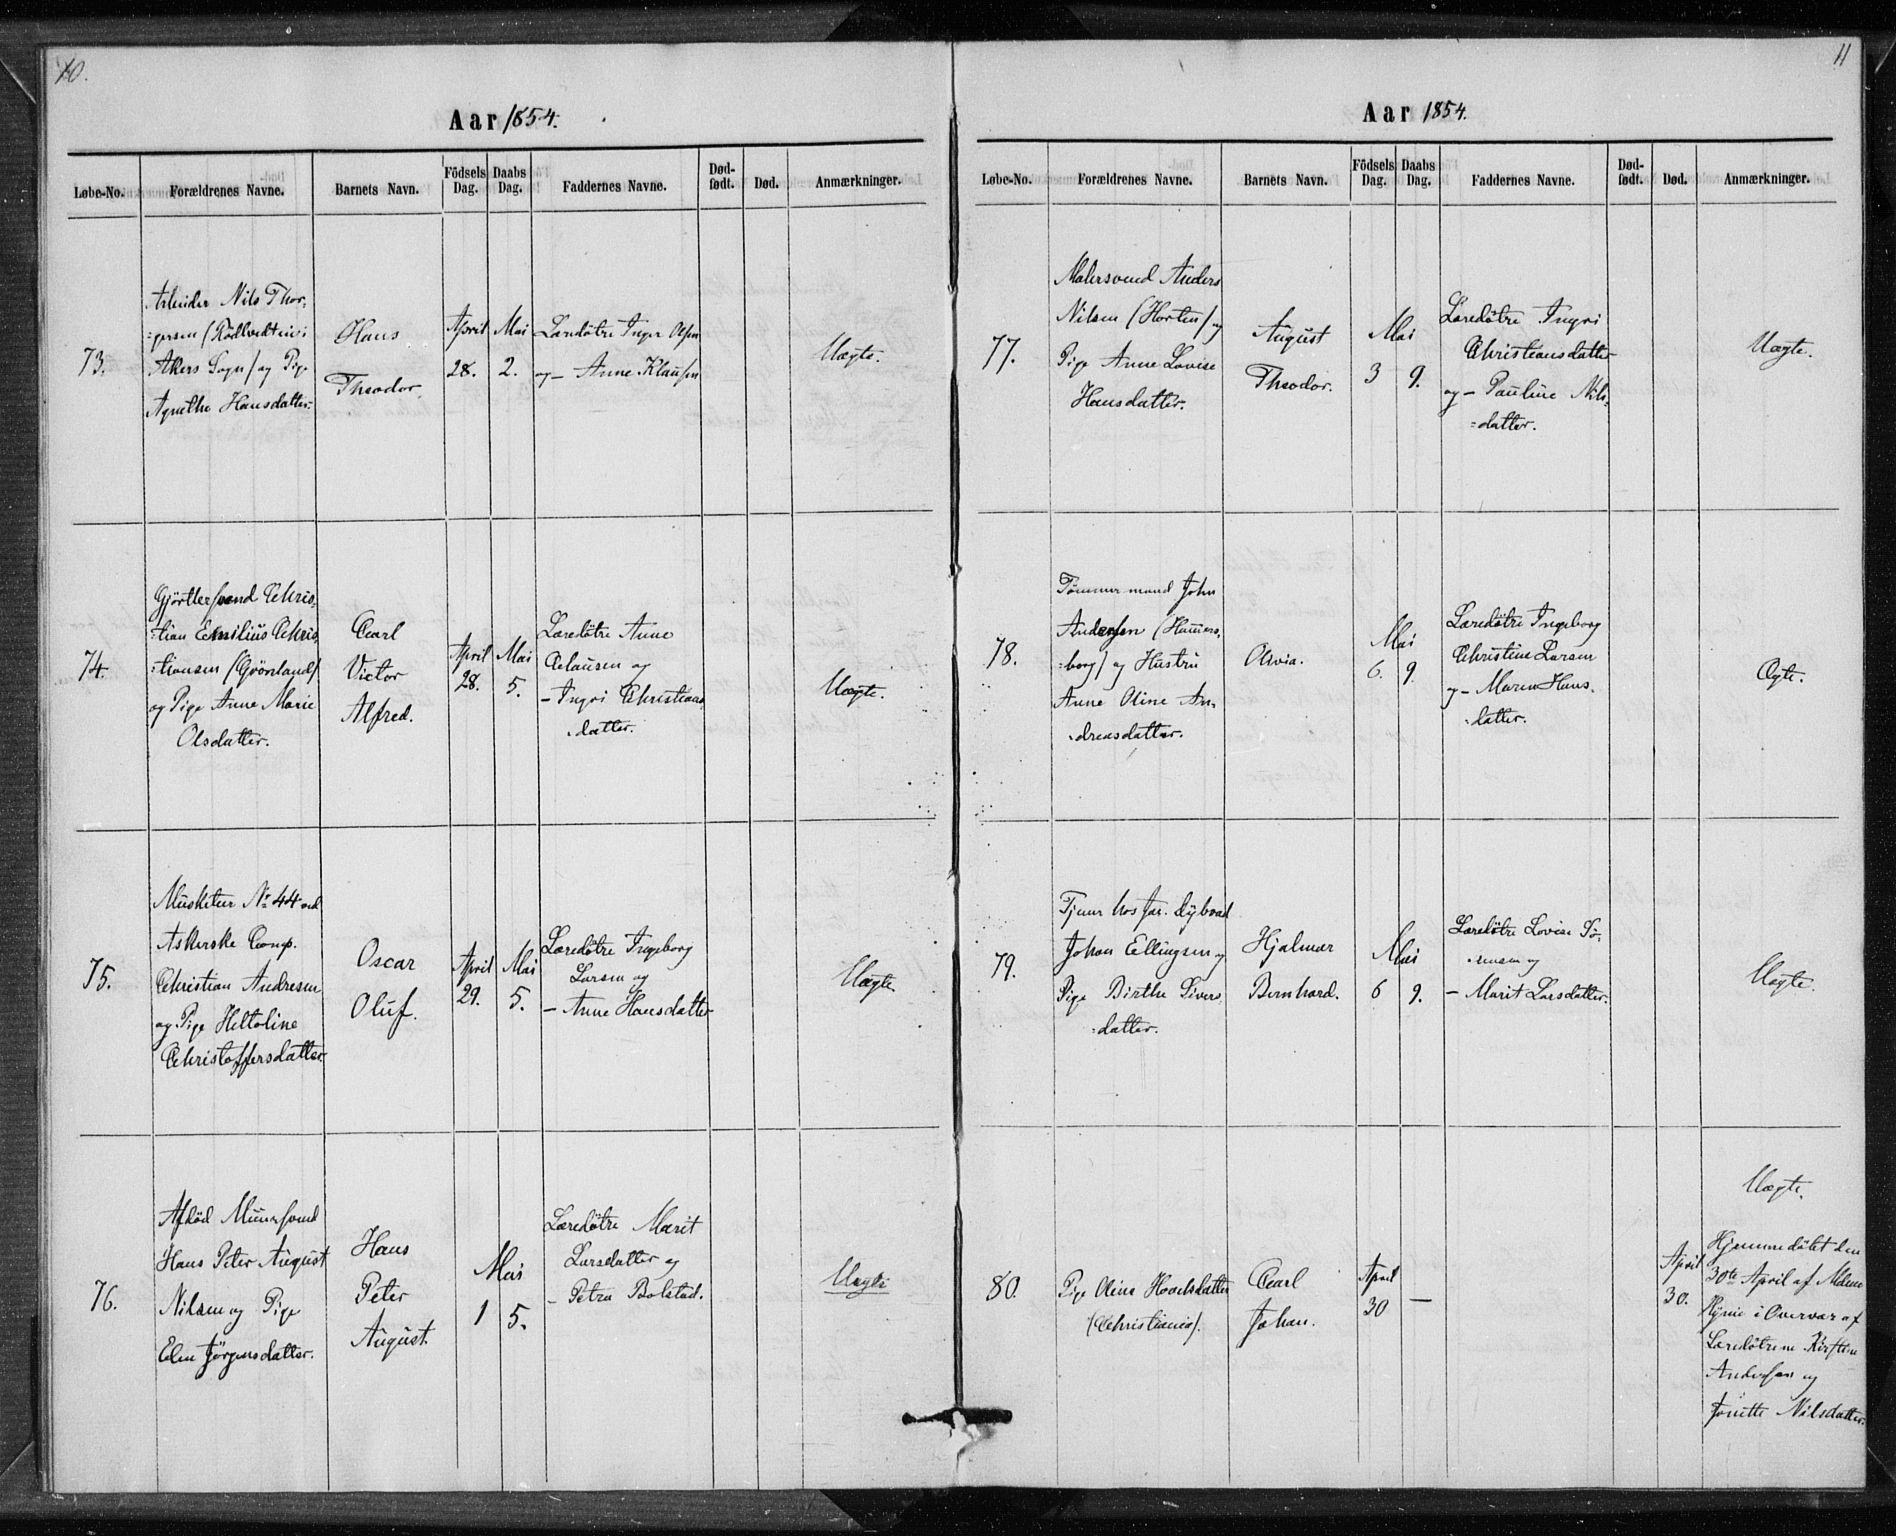 10.
Aar 1854.
Løbe-No. Forældrenes Navne. Barnets Navn. Födsels Dag. Daabs Dag. Faddernes Navne. Død-født. Død. Anmærkninger.
73.
Arbeider Nils Thor-
=gersen (Rödtvedt
Akers Sogn) og Pige
Agnethe Hansdatter.
Hans
Theodor.
April
28.
Mai
2.
Inger Olsen
og — Anne Klausen
Uægte.
74.
Gjörtlersvend Chris-
=tian Emilius Chris
=tiansen (Grönland)
og Pige Anne Marie
Olsdatter.
Carl
Victor
Alfred.
April
28.
Mai
5.
Læredøtre Anne
Clausen og
— Ingri Christians
datter.
Uægte.
75.
Musketeer No 44 ved
Askerske Comp.
Christian Andresen
og Pige Heltoline
Christoffersdatter
Oscar
Oluf.
April
29.
Mai
5.
Læredøtre Ingeborg
Larsen og
— Anne Hansdatter
Uægte.
76.
Afdöd Muursvend
Hans Peter August
Nilsen og Pige
Elen Jörgensdatter.
Hans
Peter
August.
Mai
1
5.
Læredøtre Marit
Larsdatter og
— Petra Bolstad.
Uægte
11
Aar 1854.
Løbe-No. Forældrenes Navne. Barnets Navn. Födsels Dag. Daabs Dag. Faddernes Navne. Død-født. Død. Anmærkninger.
77.
Malersvend Anders
Nilsen (Horten) og
Pige Anne Lovise
Hansdatter.
August
Theodor.
Mai
3
9.
Læredøtre Ingri
Christiansdatter
og — Pauline Nils=
=datter.
Uægte.
78.
Tømmermand John
Andersen (Hamers-
=borg) og Hustru
Anne Oline An-
dreasdatter.
Olivia.
Mai
6.
9.
Læredøtre Ingeborg
Christine Larsen
og — Maren Hans.
datter.
Ægte.
79.
Tjener hos Dybvad
Johan Ellingsen og
Pige Birthe Sivers
datter.
Hjalmar
Bernhard.
Mai
6
9.
Læredøtre Lovise Sö-
rensen og
— Marit Larsdatter.
Uægte.
80.
Pige Oline Hovelsdatter
(Christiania).
Carl
Johan.
April
30
—
April
30.
Uægte.
Hjemmedöbt den
30te April af
i Overvær af
Læredøtrene Kirstine
Andersen og
Nilsdatter.